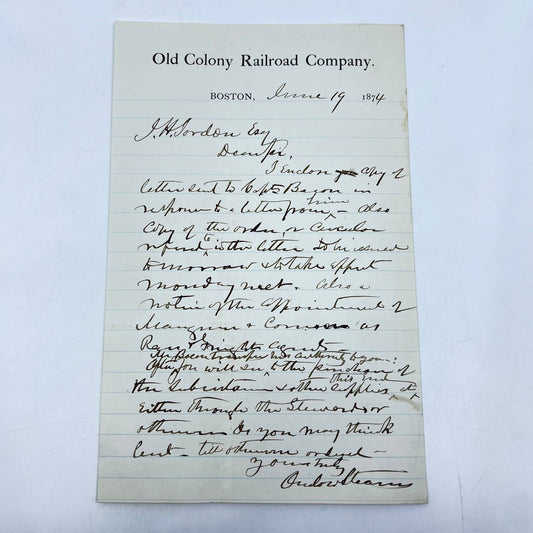 Old Colony Railroad Company.
BOSTON, June 19 1874
J. H. Jordon Esq
Dear Sir,
I Enclose copy of
letter sent to Capt Bacon in
response to a letter from him – Also
Copy of the order, or Circular
referred to in the letter to be issued
tomorrow & to take effect
Monday next. Also a
notice of the appointment of
& as
Freight Agents
Mr Bacon transfer his authority to you:
After you will see to the purchase of
the & other supplies, this
Either through the Stewards or
otherwise as you may think
best – till otherwise ordered –
yours truly
Onslow Stearns